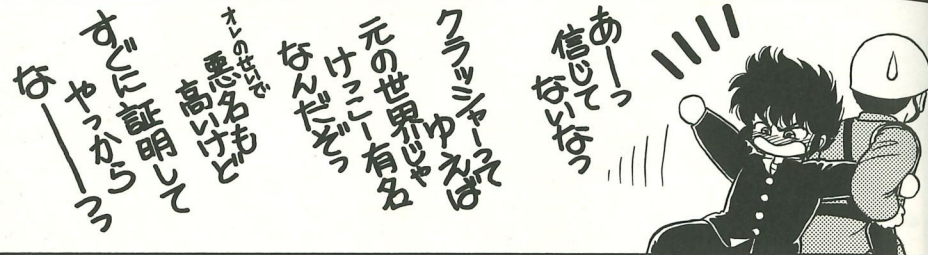 あーっ
信じて
ないなっ
クラッシャーって
ゆえば
元の世界じゃ
けっこー有名
なんだぞっ
オレのせいで
悪名も
高いけど
すぐに証明して
やっから
なーーっっ